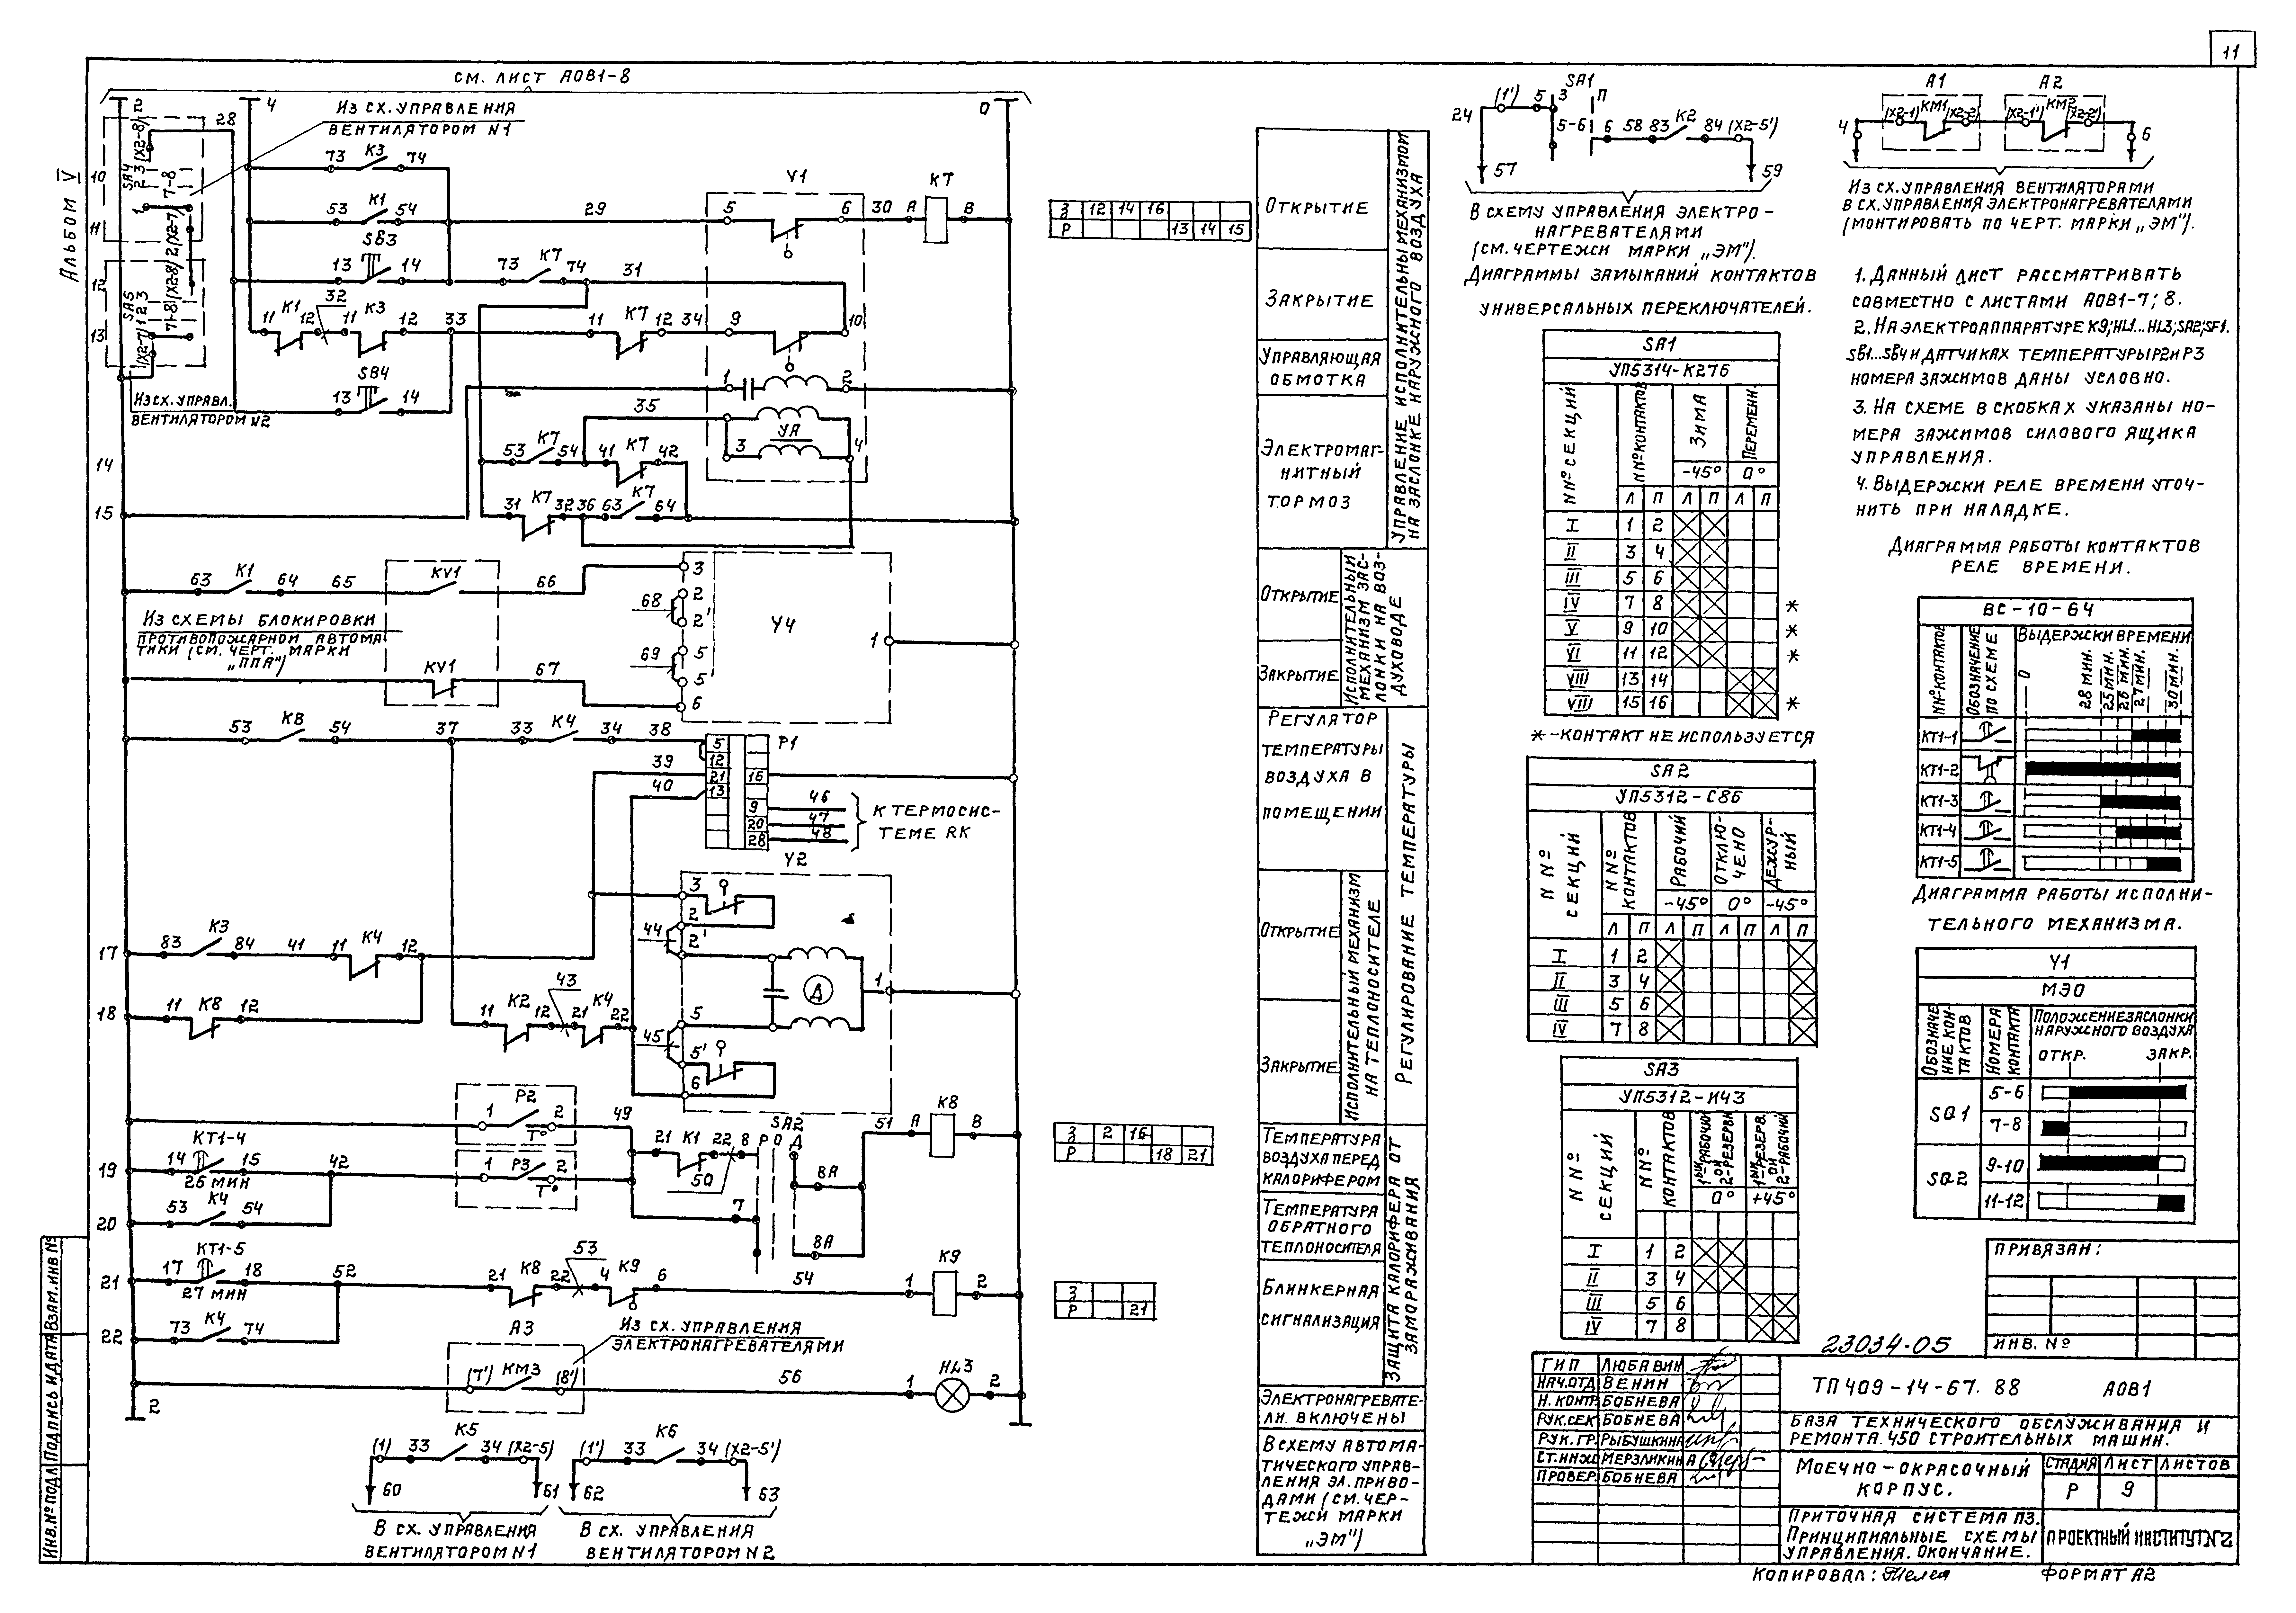 11
СМ. ЛИСТ АОВ1-8
Альбом V
2
4
0
Из сх. управления
вентилятором N1
28
(X2-8)
SA4
2 3
7-8
10
11
1
2(X2-7)
73 К3 74
53 К1 54
29
SБ3
13 14
73 К7 74
31
32
11 К1 12 11 К3 12
33
11 К7 12 34
SВ4
13 14
12
13
SA5
1 2 3
7-8(X2-8)
(X2-7)
Из сх. управл.
вентилятором N2
У1
5 6
30
А К7 В
9 10
1 2
35
УА
3 4
53 К7 54 41 К7 42
31 К7 32 36 63 К7 64
14
15
З 12 14 16
Р 13 14 15
63 К1 64 65
KV1
66
Из схемы блокировки
противопожарной автома-
тики (см. черт. марки
„ППА")
KV1
67
3
2
68
2'
5
69
5'
6
У4
1
53 К8 54
37
33 К4 34 38
39
40
Р1
5
12
21 16
13
9 46
20 47
28 48
К термосис-
теме RK
У2
3
2
44
2'
5
45
5'
6
Д
1
17
83 К3 84 41 11 К4 12
18
11 К8 12
43
11 К2 12 21 К4 22
Р2
1 2
Т°
49
КТ1-4
19
14 15
26 мин
42
1 Р3 2
Т°
21 К1 22 8
50
SA2
Р О Д
7
8А
8А
51
А К8 В
20
53 К4 54
З 2 16
Р 18 21
КТ1-5
21
17 18
27 мин
52
53
21 К8 22 4 К9 6
54
1 К9 2
22
73 К4 74
З
Р 21
А3
Из сх. управления
электронагревателями
(7') КМ3 (8')
56
1 HL3 2
2
(1) 33 К5 34 (X2-5)
60 61
В сх. управления
вентилятором N1
(1') 33 К6 34 (X2-5')
62 63
В сх. управления
вентилятором N2
Открытие
Закрытие
Управляющая
обмотка
Электромаг-
нитный
тормоз
Управление исполнительным механизмом
на заслонке наружного воздуха
Открытие
Закрытие
Исполнительный
механизм зас-
лонки на воз-
духоводе
Регулятор
температуры
воздуха в
помещении
Открытие
Закрытие
Исполнительный механизм
на теплоносителе
Регулирование температуры
Температура
воздуха перед
калорифером
Температура
обратного
теплоносителя
Блинкерная
сигнализация
Защита калорифера от
замораживания
Электронагревате-
ли включены
В схему автома-
тического управ-
ления эл. приво-
дами (см. чер-
тежи марки
„ЭМ")
SA1
(1') 5 3 П
24
5-6
6 58 83 К2 84 (X2-5')
57 59
В схему управления электро-
нагревателями
(см. чертежи марки „ЭМ").
А1 А2
(X2-1) КМ1 (X2-2) (X2-1') КМ2 (X2-2')
4 6
Из сх. управления вентиляторами
в сх. управления электронагревателями
(монтировать по черт. марки „ЭМ").
Диаграммы замыканий контактов
универсальных переключателей.
SA1
УП5314-К276
N№ секций
N№ контактов
Зима
Переменн.
-45° 0°
Л П Л П Л П
I 1 2
II 3 4
III 5 6
IV 7 8 *
V 9 10 *
VI 11 12 *
VIII 13 14
VII 15 16 *
*-контакт не используется
SA2
УП5312-С86
N№
секций
N№
контактов
Рабочий
Отклю-
чено
Дежур-
ный
-45° 0° -45°
Л П Л П Л П Л П
I 1 2
II 3 4
III 5 6
IV 7 8
SA3
УП5312-И43
N№
секций
N№
контактов
1ый рабочий
2ой-резервн
1ый резерв.
2ой-рабочий
0° +45°
I 1 2
II 3 4
III 5 6
IV 7 8
1. Данный лист рассматривать
совместно с листами АОВ1-7; 8.
2. На электроаппаратуре К9; HL1...HL3; SA2; SF1.
SВ1...SВ4 и датчиках температуры Р2 и Р3
номера зажимов даны условно.
3. На схеме в скобках указаны но-
мера зажимов силового ящика
управления.
4. Выдержки реле времени уточ-
нить при наладке.
Диаграмма работы контактов
реле времени.
ВС-10-64
N№ контактов
Обозначение
по схеме
Выдержки времени
0
28 мин.
25 мин.
26 мин.
27 мин.
30 мин.
КТ1-1
КТ1-2
КТ1-3
КТ1-4
КТ1-5
Диаграмма работы исполни-
тельного механизма.
У1
МЭО
Обозначе-
ние кон-
тактов
Номера
контакта
Положение заслонки
наружного воздуха
откр. закр.
SQ1
5-6
7-8
SQ2
9-10
11-12
Привязан:
Инв. №
23034-05
ГИП Любавин
Нач.отд Венин
Н. контр. Бобнева
Рук.сек Бобнева
Рук. гр. Рыбушкина
Ст.инж Мерзликина
Провер. Бобнева
ТП 409-14-67.88 АОВ1
База технического обслуживания и
ремонта. 450 строительных машин.
Моечно-окрасочный
корпус.
Стадия Лист Листов
Р 9
Приточная система П3.
Принципиальные схемы
управления. Окончание.
ПРОЕКТНЫЙ ИНСТИТУТ №2
Копировал:
Формат А2
Инв.№ подл Подпись и дата Взам.инв №